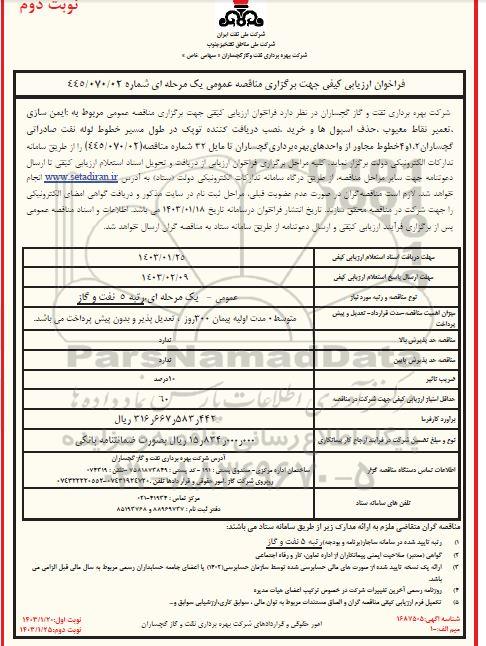 نوبت دوم
شرکت ملی نفت ایران
شرکت ملی مناطق نفتخیز جنوب
شرکت بهره برداری نفت و گاز گچساران « سهامی خاص »
فراخوان ارزیابی کیفی جهت برگزاری مناقصه عمومی یک مرحله ای شماره ۴۴۵/۰۷۰/۰۲
شرکت بهره برداری نفت و گاز گچساران در نظر دارد فراخوان ارزیابی کیفی جهت برگزاری مناقصه عمومی مربوط به :ایمن سازی
،تعمیر نقاط معیوب ،حذف اسپول ها و خرید ،نصب دریافت کننده توپک در طول مسیر خطوط لوله نفت صادراتی
گچساران۱،۲و۴خطوط مجاور از واحدهای بهره‌برداری گچساران تا مایل ۳۲ شماره مناقصه(۴۴۵/۰۷۰/۰۲) را از طریق سامانه
تدارکات الکترونیکی دولت برگزار نماید. کلیه مراحل برگزاری فراخوان ارزیابی از دریافت و تحویل اسناد استعلام ارزیابی کیفی تا ارسال
دعوتنامه جهت سایر مراحل مناقصه، از طریق درگاه سامانه تدارکات الکترونیکی دولت (ستاد) به آدرس www.setadiran.ir انجام
خواهد شد. لازم است مناقصه‌گران در صورت عدم عضویت قبلی، مراحل ثبت نام در سایت مذکور و دریافت گواهی امضای الکترونیکی
را جهت شرکت در مناقصه محقق سازند. تاریخ انتشار فراخوان درسامانه تاریخ ۱۴۰۳/۰۱/۱۸ می باشد. اطلاعات و اسناد مناقصه عمومی
پس از برگزاری فرآیند ارزیابی کیفی و ارسال دعوتنامه از طریق سامانه ستاد به مناقصه گران ارسال خواهد شد.
مهلت دریافت اسناد استعلام ارزیابی کیفی ۱۴۰۳/۰۱/۲۵
مهلت ارسال پاسخ استعلام ارزیابی کیفی ۱۴۰۳/۰۲/۰۹
نوع مناقصه و رتبه مورد نیاز عمومی - یک مرحله ای،رتبه ۵ نفت و گاز
میزان اهمیت مناقصه-مدت قرارداد- تعدیل و پیش پرداخت متوسط- مدت اولیه پیمان ۳۰۰روز ، تعدیل پذیر و بدون پیش پرداخت می باشد.
مناقصه حد پذیرش بالا ندارد
مناقصه حد پذیرش پایین ندارد
ضریب تاثیر ۱۰درصد
حداقل امتیاز ارزیابی کیفی جهت شرکت در مناقصه ۶۰
برآورد کارفرما ۳۱۶٫۶۶۷٫۵۸۳٫۴۴۲ ریال
نوع و مبلغ تضمین شرکت در فرآیند ارجاع کار پیمانکاری ۱۵٫۸۳۴٫۰۰۰٫۰۰۰ ریال بصورت ضمانتنامه بانکی
آدرس شرکت بهره برداری نفت و گاز گچساران
اطلاعات تماس دستگاه مناقصه گزار ساختمان اداره مرکزی - صندوق پستی : ۱۹۱ - کد پستی : ۷۵۸۱۸۷۳۸۴۹ -تلفن: ۰۷۴۳۱۹
روبروی شرکت گاز -امور حقوقی و قرارداد ها تلفن ۰۷۴۳۱۹۲۴۷۳۰-۰۷۴۳۲۲۲۰۵۵۲
تلفن های سامانه ستاد مرکز تماس : ۴۱۹۳۴-۰۲۱
دفتر ثبت نام : ۸۸۹۶۹۷۳۷ و ۸۵۱۹۳۷۶۸
مناقصه گران متقاضی ملزم به ارائه مدارک زیر از طریق سامانه ستاد می باشند:
۱) رتبه تایید شده در سامانه ساجار(برنامه و بودجه)رتبه ۵ نفت و گاز
۲) گواهی (معتبر) صلاحیت ایمنی پیمانکاران از اداره تعاون، کار و رفاه اجتماعی
۳) ارائه یک نسخه تایید شده از صورت های مالی حسابرسی شده توسط سازمان حسابرسی(۱۴۰۲) یا اعضای جامعه حسابداران رسمی مربوط به سال مالی قبل الزامی می
باشد.
۴) روزنامه رسمی آخرین تغییرات شرکت در خصوص ترکیب اعضای هیات مدیره
۵) تکمیل فرم ارزیابی کیفی مناقصه گران و الصاق مستندات مربوط به توان مالی ، سوابق کاری،ارزشیابی سوابق و...
شناسه آگهی: ۱۶۸۷۵۰۵
میم الف:۱۰
امور حقوقی و قراردادهای شرکت بهره برداری نفت و گاز گچساران
نوبت اول: ۱۴۰۳/۱/۲۰
نوبت دوم: ۱۴۰۳/۱/۲۵
ParsNamadData